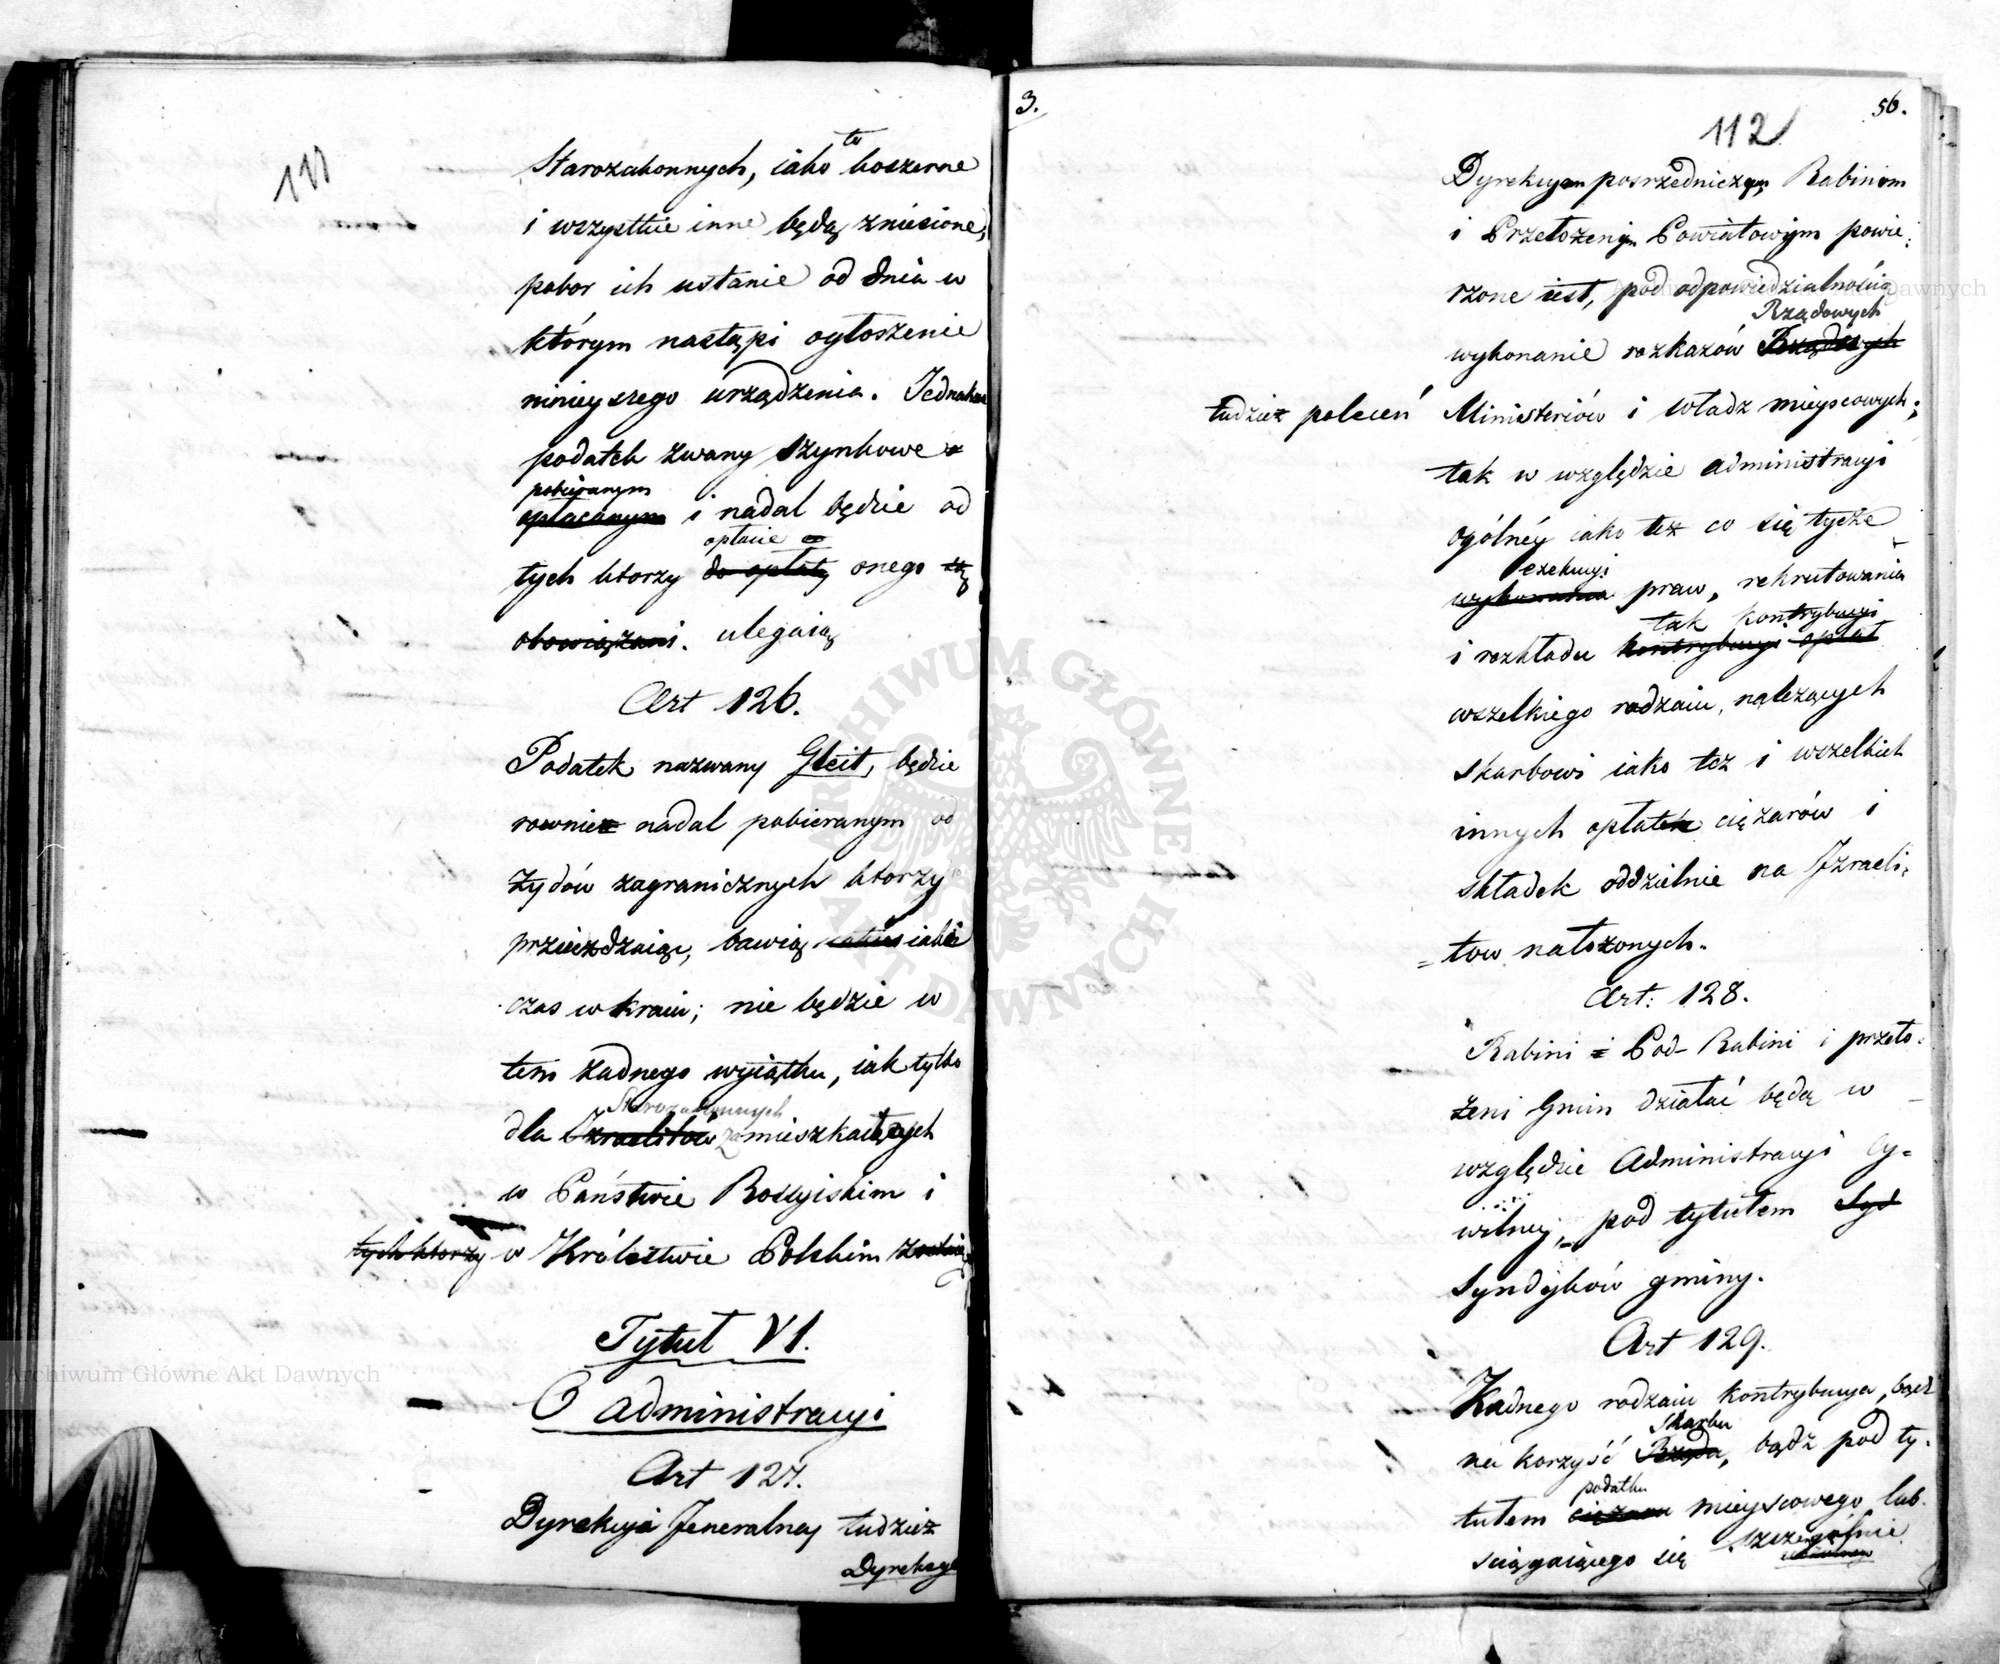 111
Starozakonnych, iako to koszerne
i wszystkie inne będą zniesione,
pobor ich ustanie od dnia w
którym nastąpi ogłoszenie
ninieyszego urządzenia. Jednakze
podatek zwany szynkowe
pobieranym
opłacanym i nadal będzie od
opłacie
tych ktorzy do opłaty onego są
obowiązani. ulegaią
Art 126.
Podatek nazwany Gleit, będzie
rownież nadal pobieranym od
Żydów zagranicznych ktorzy
przieżdzaiąc, bawią iakiś
czas w kraiu; nie będzie w
tem żadnego wyiątku, iak tylko
Starozakonnych
dla Izraelitów zamieszkałych
w Państwie Rossyiskim i
tych ktorzy w Królestwie Polskim
Tytuł VI.
O administracyi
Art 127.
Dyrekcyi Jeneralney tudzież
Dyrekcy
3.
56.
112
Dyrekcyom posrzedniczym Rabinom
i Przełożonym Powiatowym powie-
rzone iest, pod odpowiedzialnością
Rządowych
wykonanie rozkazów Rządowych
tudzież poleceń Ministeriów i władz mieyscowych;
tak w względzie administracyi
ogólnéy iako też co się tycze
exekucyi
wykonania praw, rekrutowania
tak kontrybucyi
i rozkładu kontrybucyi opłat
wszelkiego rodzaiu, należących
skarbowi iako też i wszelkich
innych opłatek ciężarów i
składek oddzielnie na Izraeli-
tow nałożonych.
Art: 128.
Rabini i Pod-Rabini i przeło-
żeni Gmin działać będą w
względzie Administracyi Cy-
wilney, pod tytułem Syd
Syndyków gminy.
Art 129.
Żadnego rodzaiu kontrybucya, bądź
Skarbu
na korzyść Rządu, bądź pod ty-
podatku
tułem ciężaru mieyscowego lub
ściągaiącego się szczegolnie
ARCHIWUM GŁÓWNE AKT DAWNYCH
Archiwum Główne Akt Dawnych
Archiwum Główne Akt Dawnych